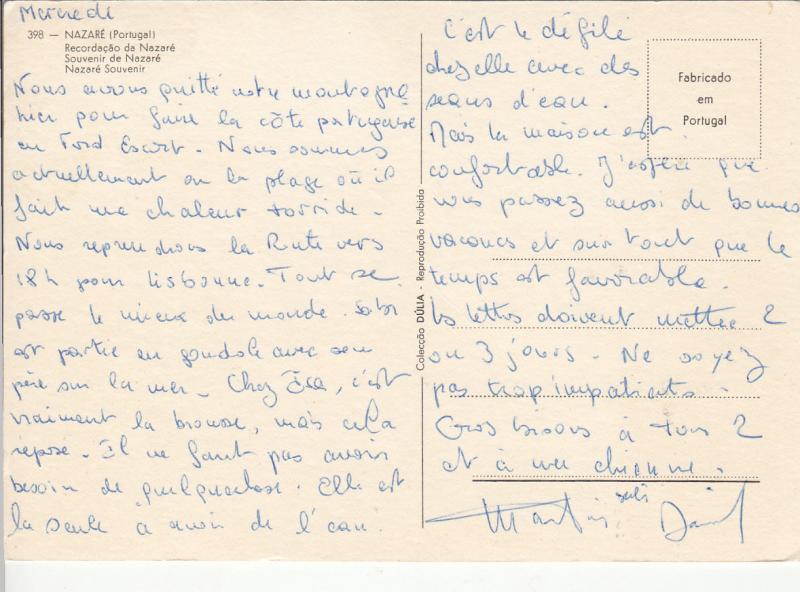 Mercredi
398 — NAZARÉ (Portugal)
Recordação da Nazaré
Souvenir de Nazaré
Nazaré Souvenir
Nous avons quitté notre montagne
hier pour faire la côte portugaise
en Ford Escort. Nous sommes
actuellement sur la plage où il
fait une chaleur torride.
Nous reprendrons la Route vers
18h pour Lisbonne. Tout se
passe le mieux du monde.
est partie en gondole avec son
père sur la mer. Chez Isa, c'est
vraiment la brousse, mais cela
repose. Il ne faut pas avoir
besoin de quelquechose. Elle est
la seule à avoir de l'eau.
Colecção DÚLIA - Reprodução Proibida
Fabricado
em
Portugal
C'est le défilé
chez elle avec des
seaux d'eau.
Mais la maison est
confortable. J'espère que
vous passez aussi de bonnes
vacances et surtout que le
temps est favorable.
Les lettres doivent mettre 2
ou 3 jours. Ne soyez
pas trop impatients.
Gros bisous à tous 2
et à ma chienne.